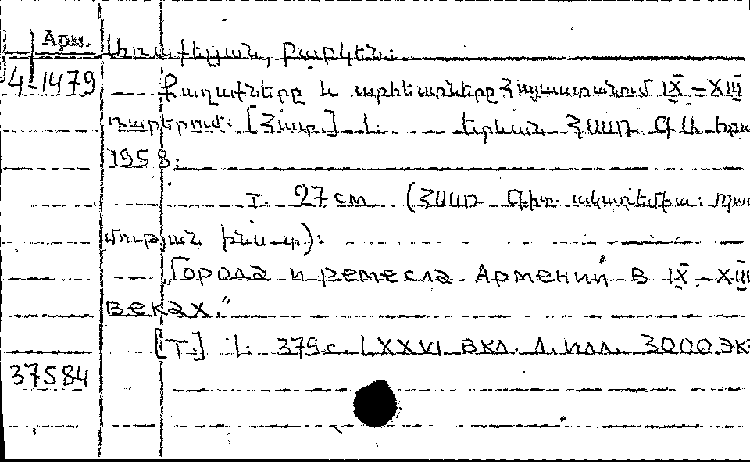 Арм.
Առաքելյան, Բաբկեն.
4-1479
Քաղաքները և արհեստները Հայաստանում IX – XIII
դարերում. [Հատ.] 1. Երևան ՀՍՍՌ ԳԱ հրա
1958.
т. 27 см (ՀՍՍՌ Գիտ. ակադեմիա. պատ
մության ինստ.):
„Города и ремесла Армении в IX – XIII
веках."
[Т.] 1. 375 с. LXXVI вкл. л. илл. 3000 эк
37584